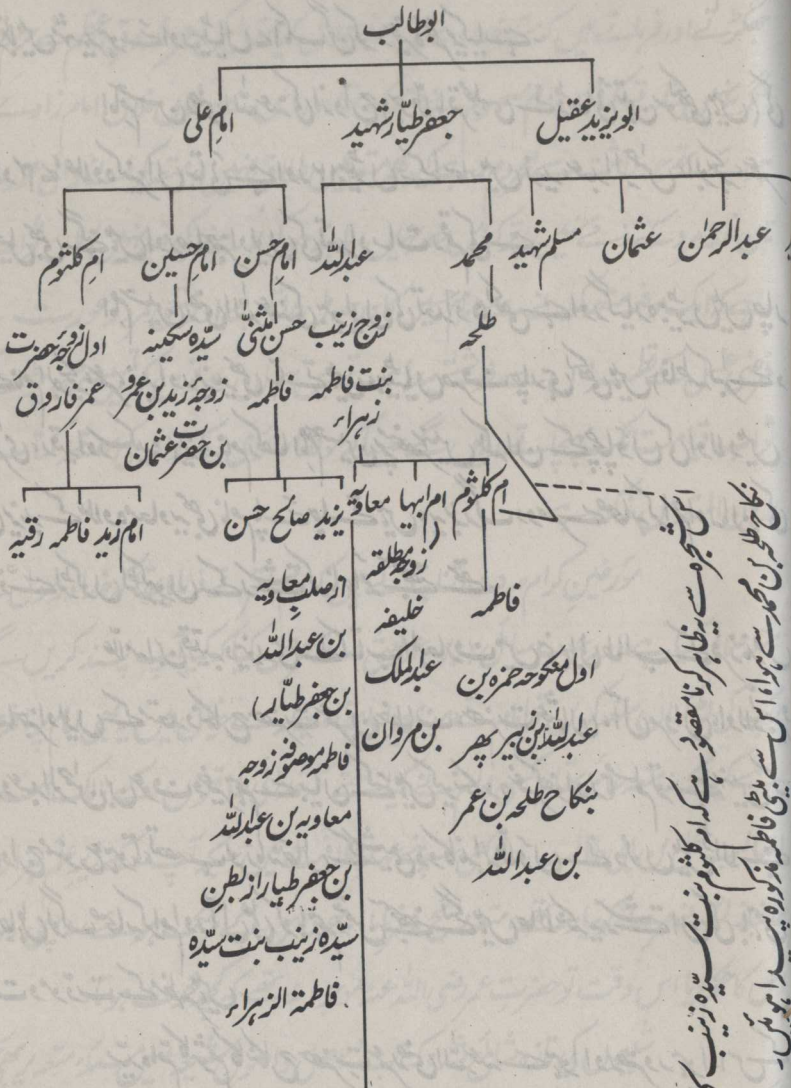 ابوطالب
ابویزید عقیل
جعفر طیّار شہید
امام علی
عبدالرحمٰن
عثمان
مسلم شہید
محمد
عبداللہ
امام حسن
امام حسین
ام کلثوم
طلحہ
زوج زینب
بنت فاطمہ
زہراء
حسن المثنیٰ
فاطمہ
سیّدہ سکینہ
زوجۂ زید بن عمرو
بن حضرت عثمان
اول زوجۂ حضرت
عمر فاروق
ام کلثوم
ام ابیہا
معاویہ
یزید صالح حسن
امام زید فاطمہ رقیہ
فاطمہ
اول منکوحہ حمزہ بن
عبداللہ بن زبیر پھر
بنکاح طلحہ بن عمر
بن عبداللہ
(زوجۂ مطلقہ
خلیفہ
عبدالملک
بن مروان
ازصلبِ معاویہ
بن عبداللہ
بن جعفر طیّار)
فاطمہ موصوفہ زوجہ
معاویہ بن عبداللہ
بن جعفر طیار از بطن
سیّدہ زینب بنت سیّدہ
فاطمۃ الزہراء
اس شجرہ سے یہ ظاہر کرنا مقصود ہے کہ ام کلثوم بنت سیّدہ زینب
نکاح طلحہ بن محمد سے ہوا، اس سے بیٹی فاطمہ مذکورہ پیدا ہوئیں۔